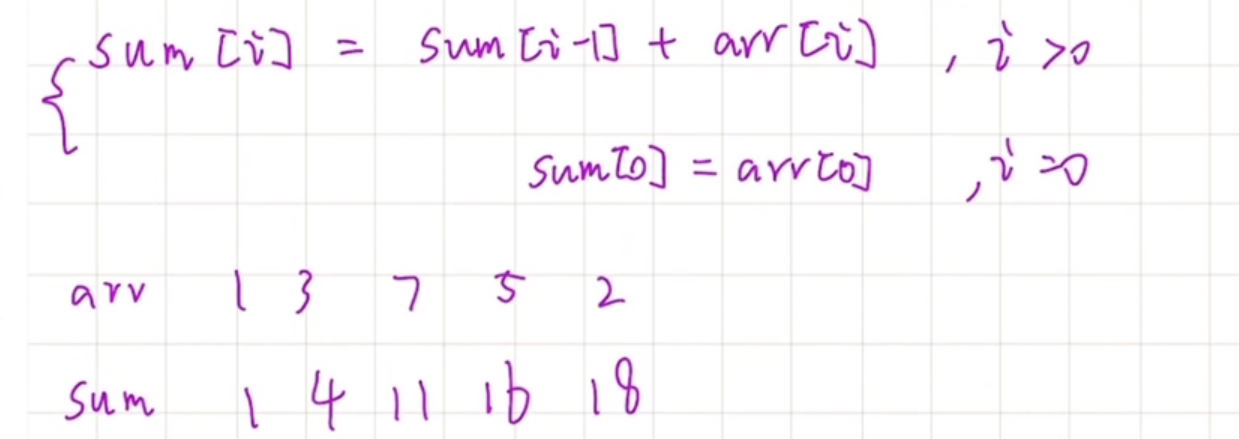 { sum [i] = sum [i-1] + arr [i] , i >0
sum[0] = arr[0] , i =0
arr 1 3 7 5 2
sum 1 4 11 16 18